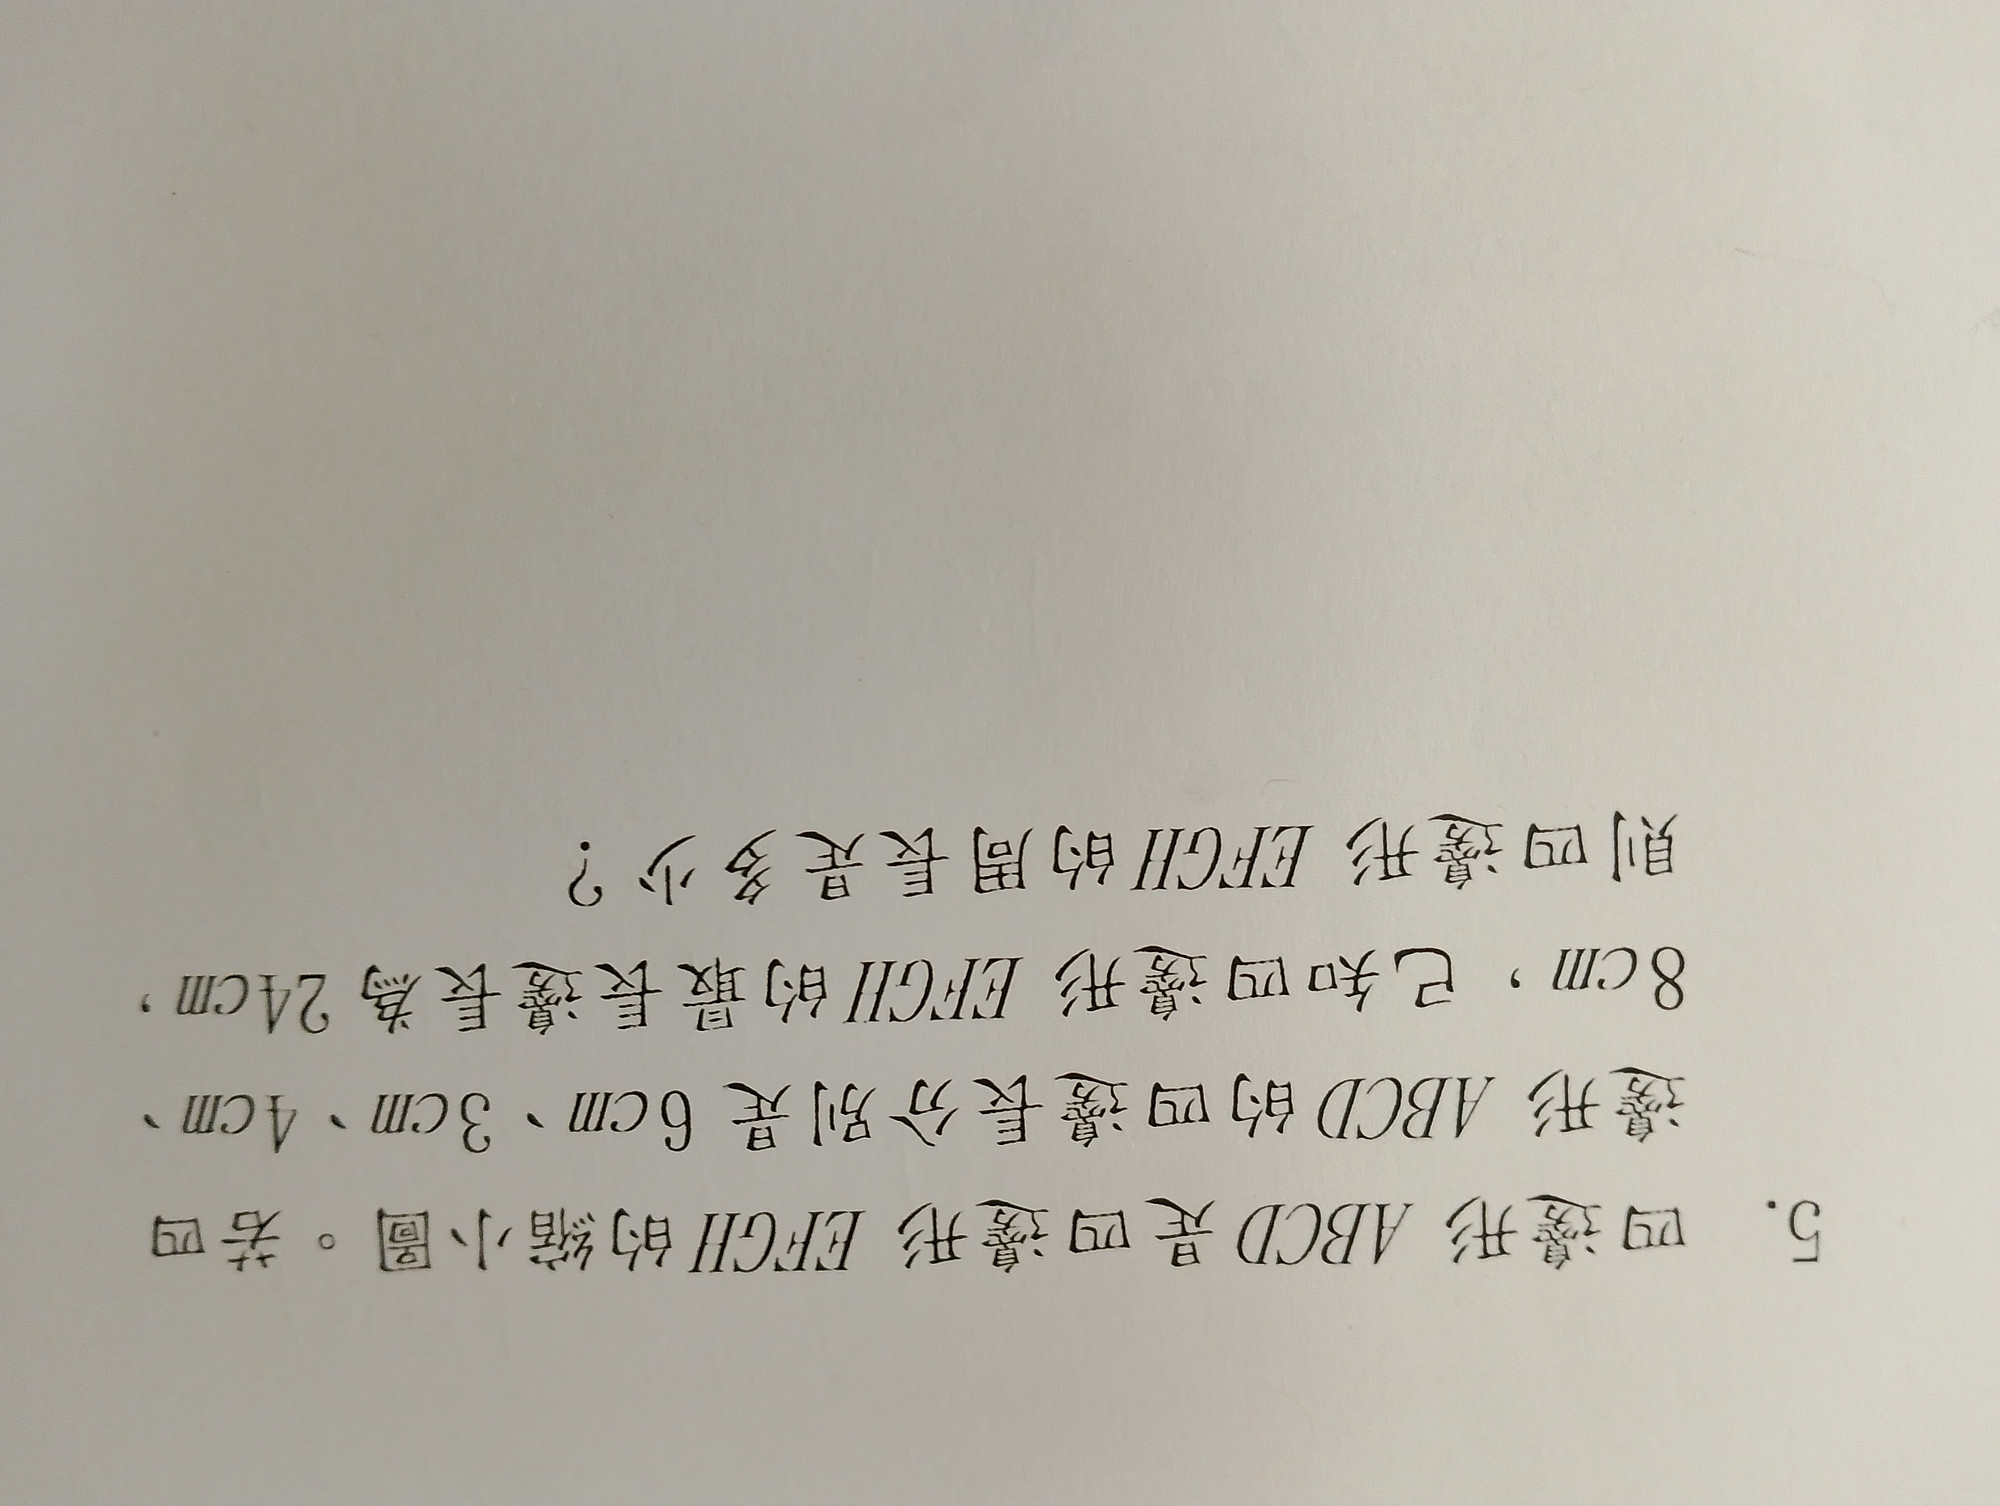 5. 四邊形 ABCD 是四邊形 EFGH 的縮小圖。若四
邊形 ABCD 的四邊長分別是 6cm、3cm、4cm、
8cm，已知四邊形 EFGH 的最長邊長為 24cm，
則四邊形 EFGH 的周長是多少？